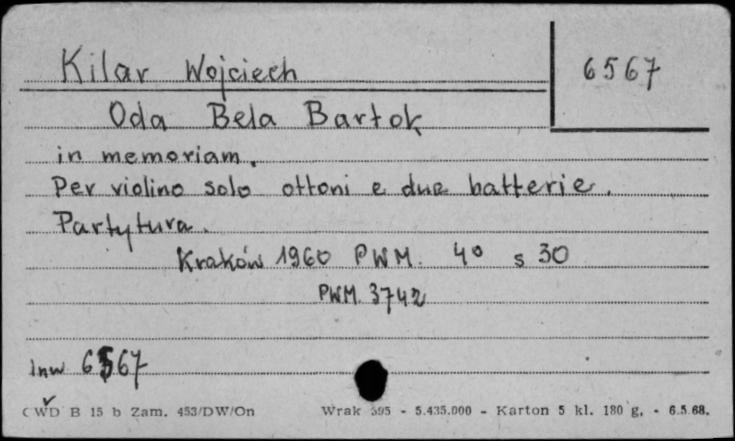 Kilar Wojciech
6567
Oda Bela Bartok
in memoriam.
Per violino solo ottoni e due batterie.
Partytura.
Kraków 1960 PWM. 4° s 30
PWM. 3742
Inw 6567
CWD B 15 b Zam. 453/DW/On Wrak 395 - 5.435.000 - Karton 5 kl. 180 g. - 6.5.68.